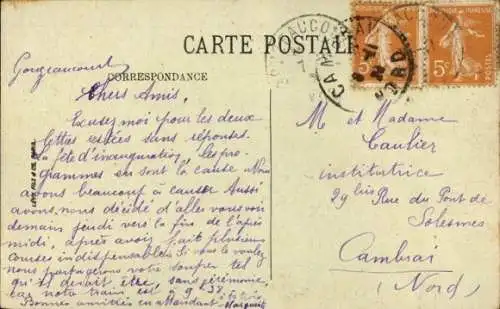 CARTE POSTALE
CORRESPONDANCE
Gouzeaucourt
Chers Amis,
Excusez moi pour les deux
lettres restées sans réponses.
La fête d'inauguration, les pro-
grammes en sont la cause. Nous
avons beaucoup à causer. Aussi
avons nous décidé d'aller vous voir
demain jeudi vers la fin de l'après
midi, après avoir fait plusieurs
courses indispensables. Si vous le voulez
nous partagerons votre souper tel
qu'il devait être, sans cérémonie,
car notre train est à 9 h. 38.
Bonnes amitiés en attendant
Marguerite
M et Madame
Caulier
institutrice
29 bis Rue du Pont de
Solesmes
Cambrai
(Nord)
5c
5c
NORD